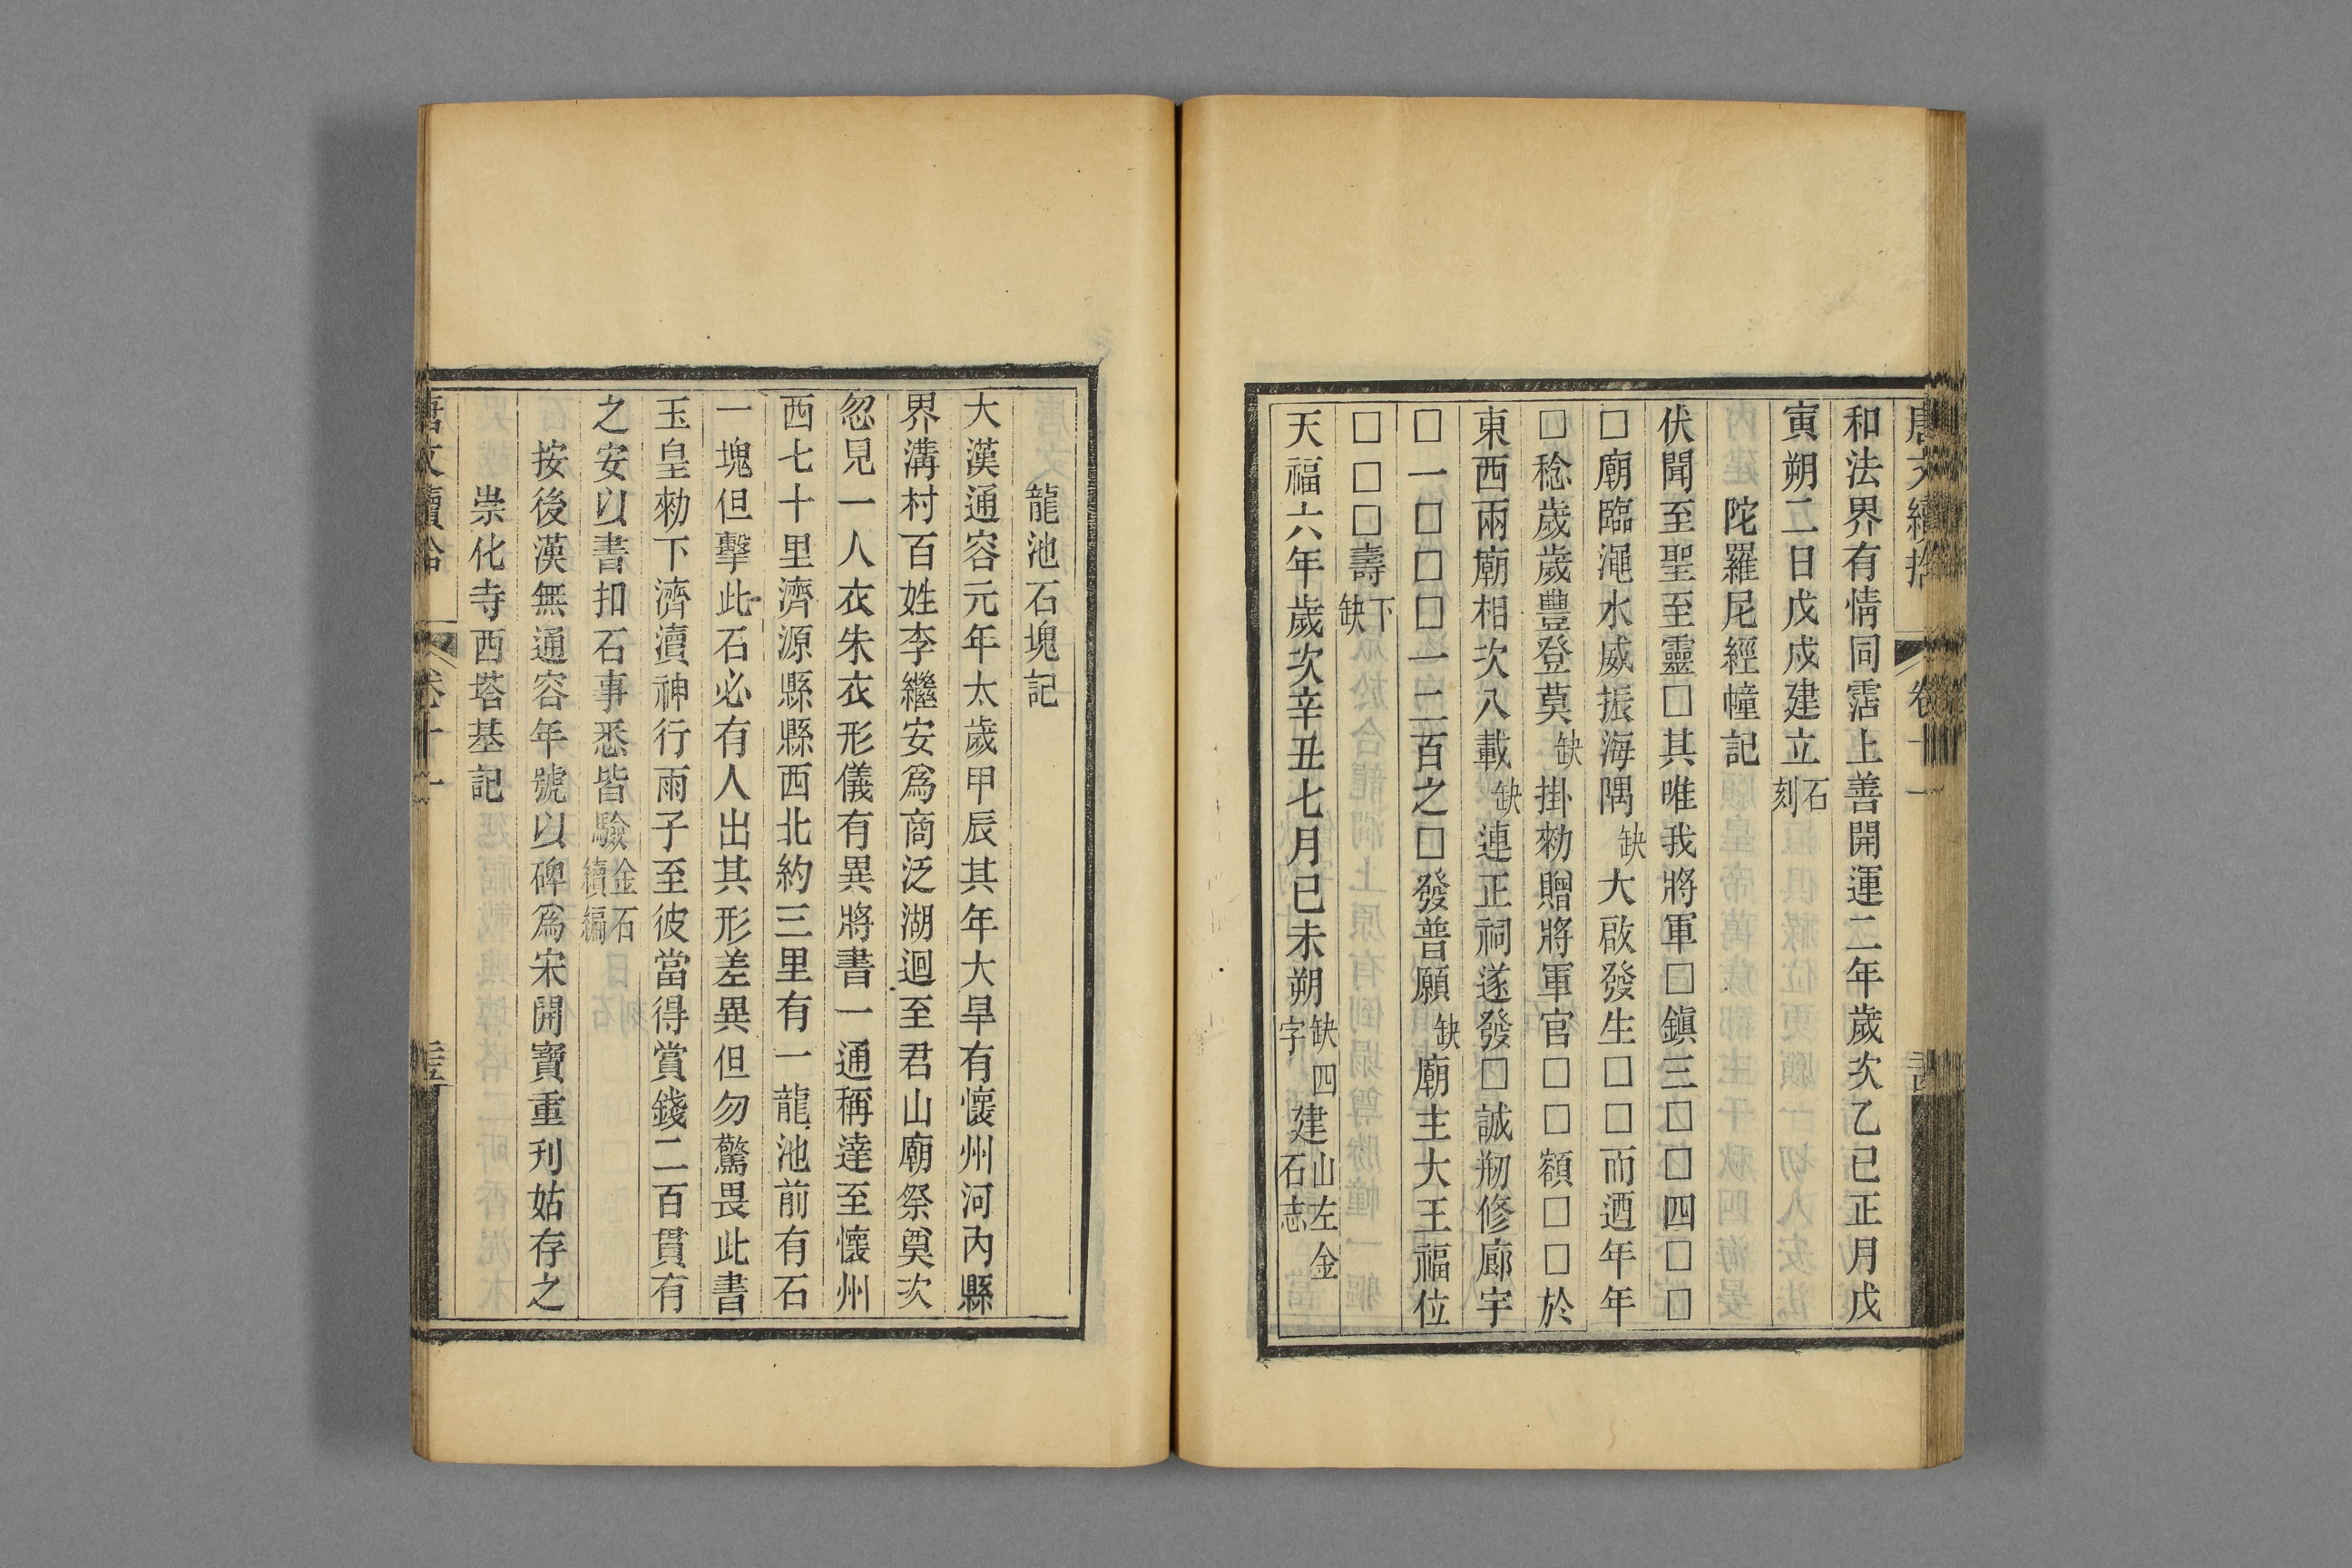 和法界有情同霑上善開運二年歲次乙巳正月戊
寅朔二日戊戌建立石刻
陀羅尼經幢記
伏聞至聖至靈□其唯我將軍□鎭三□□四□□
□廟臨澠水威振海隅缺大啟發生□□而迺年年
□稔歲歲豐登莫缺掛勑贈將軍官□□額□□於
東西兩廟相次八載缺連正祠遂發□誠剏修廊宇
□一□□□一二百之□發普願缺廟主大王福位
□□□壽下缺
天福六年歲次辛丑七月已未朔缺四字建山左金石志
龍池石塊記
大漢通容元年太歲甲辰其年大旱有懷州河內縣
界溝村百姓李繼安爲商泛湖迴至君山廟祭奠次
忽見一人衣朱衣形儀有異將書一通稱達至懷州
西七十里濟源縣縣西北約三里有一龍池前有石
一塊但擊此石必有人出其形差異但勿驚畏此書
玉皇勑下濟瀆神行雨子至彼當得賞錢二百貫有
之安以書扣石事悉皆驗金石續編
按後漢無通容年號以碑爲宋開寶重刊姑存之
崇化寺西塔基記
唐文續拾 卷十一